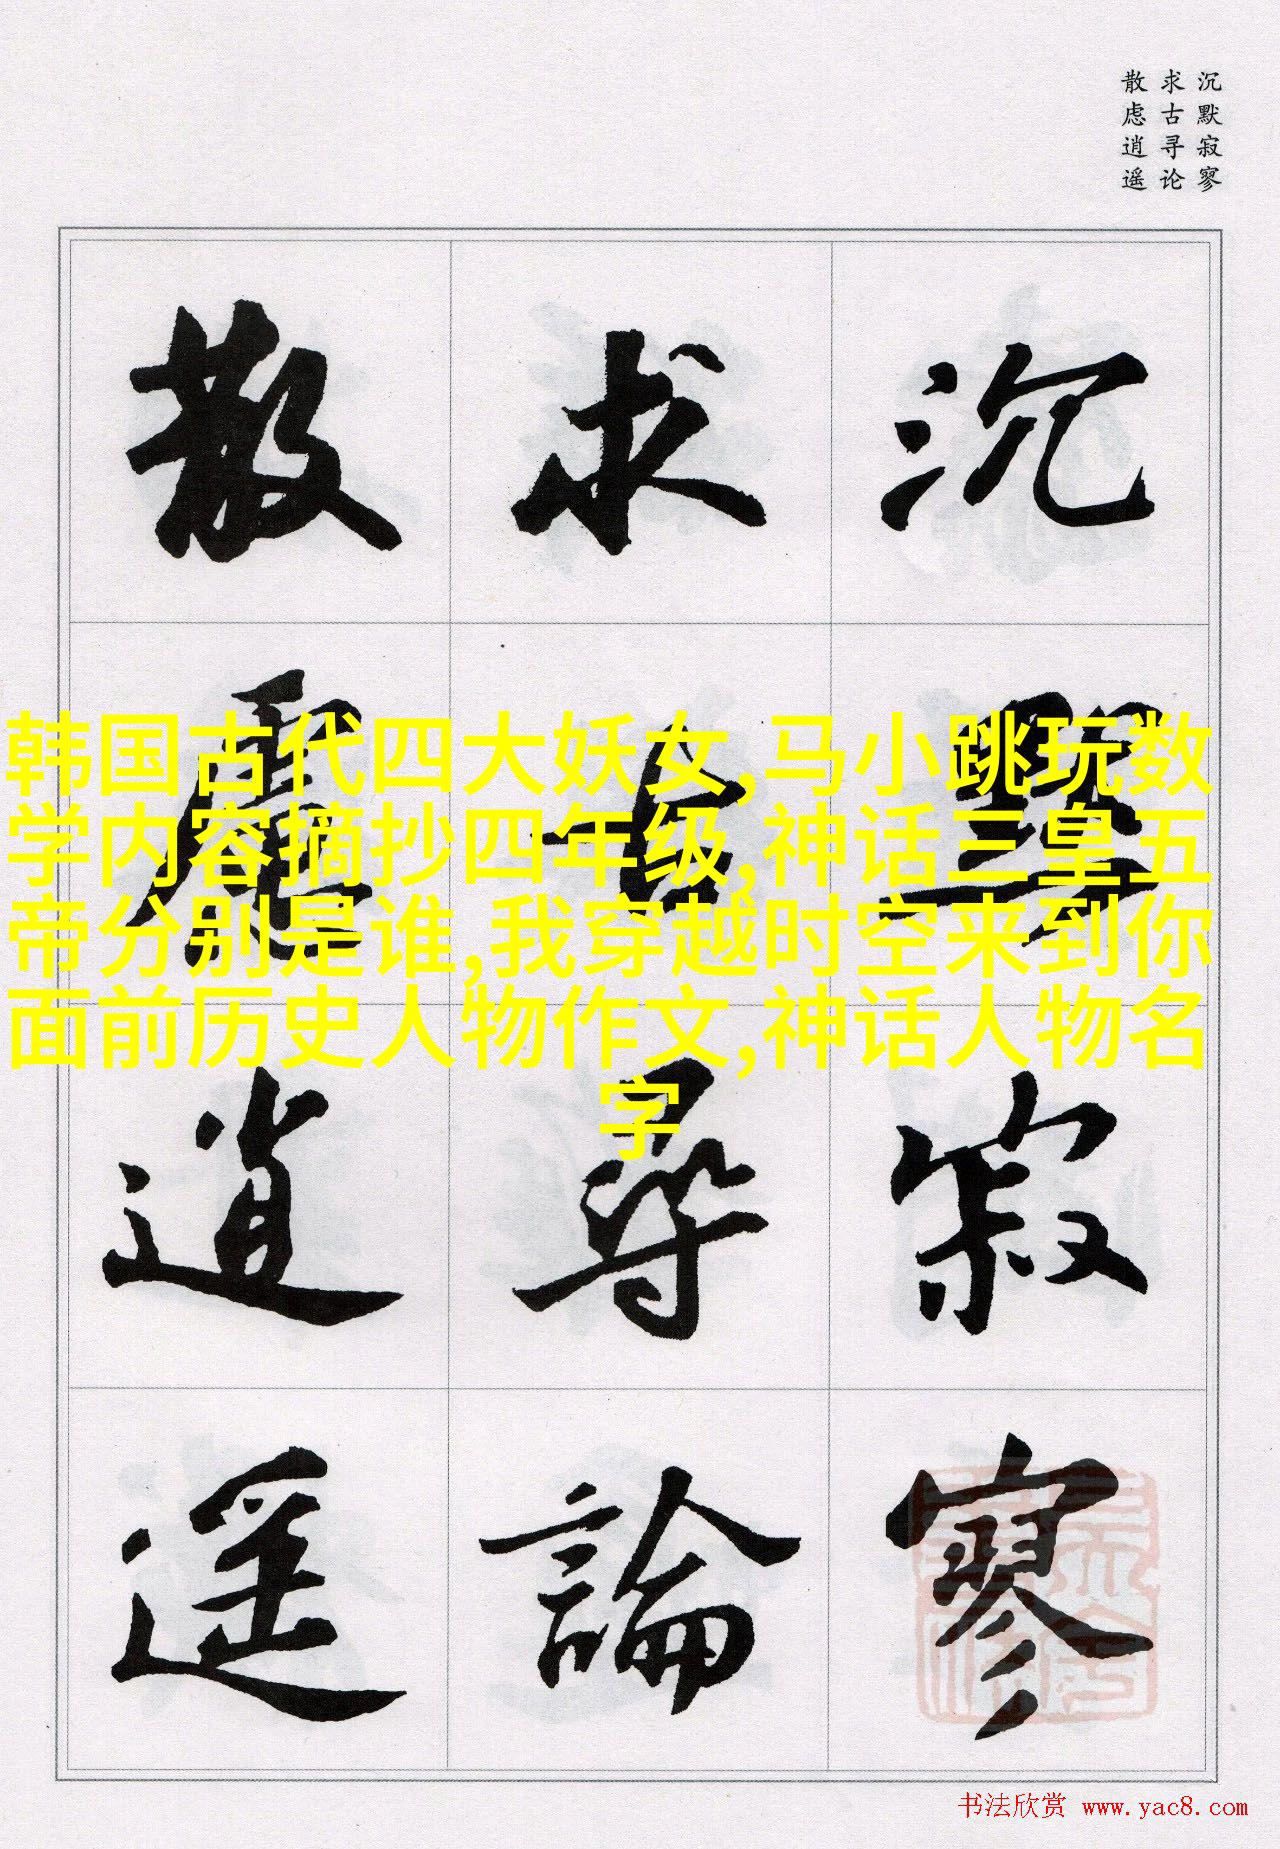 沉默寂寥
求古寻论
散虑逍遥
沉默寂寥
求古尋論
散慮逍遥
韩国古代四大妖女,马小跳玩数
学内容摘抄四年级,神话三皇五
帝分别是谁,我穿越时空来到你
面前历史人物作文,神话人物名
字
书法欣赏 www.yac8.com